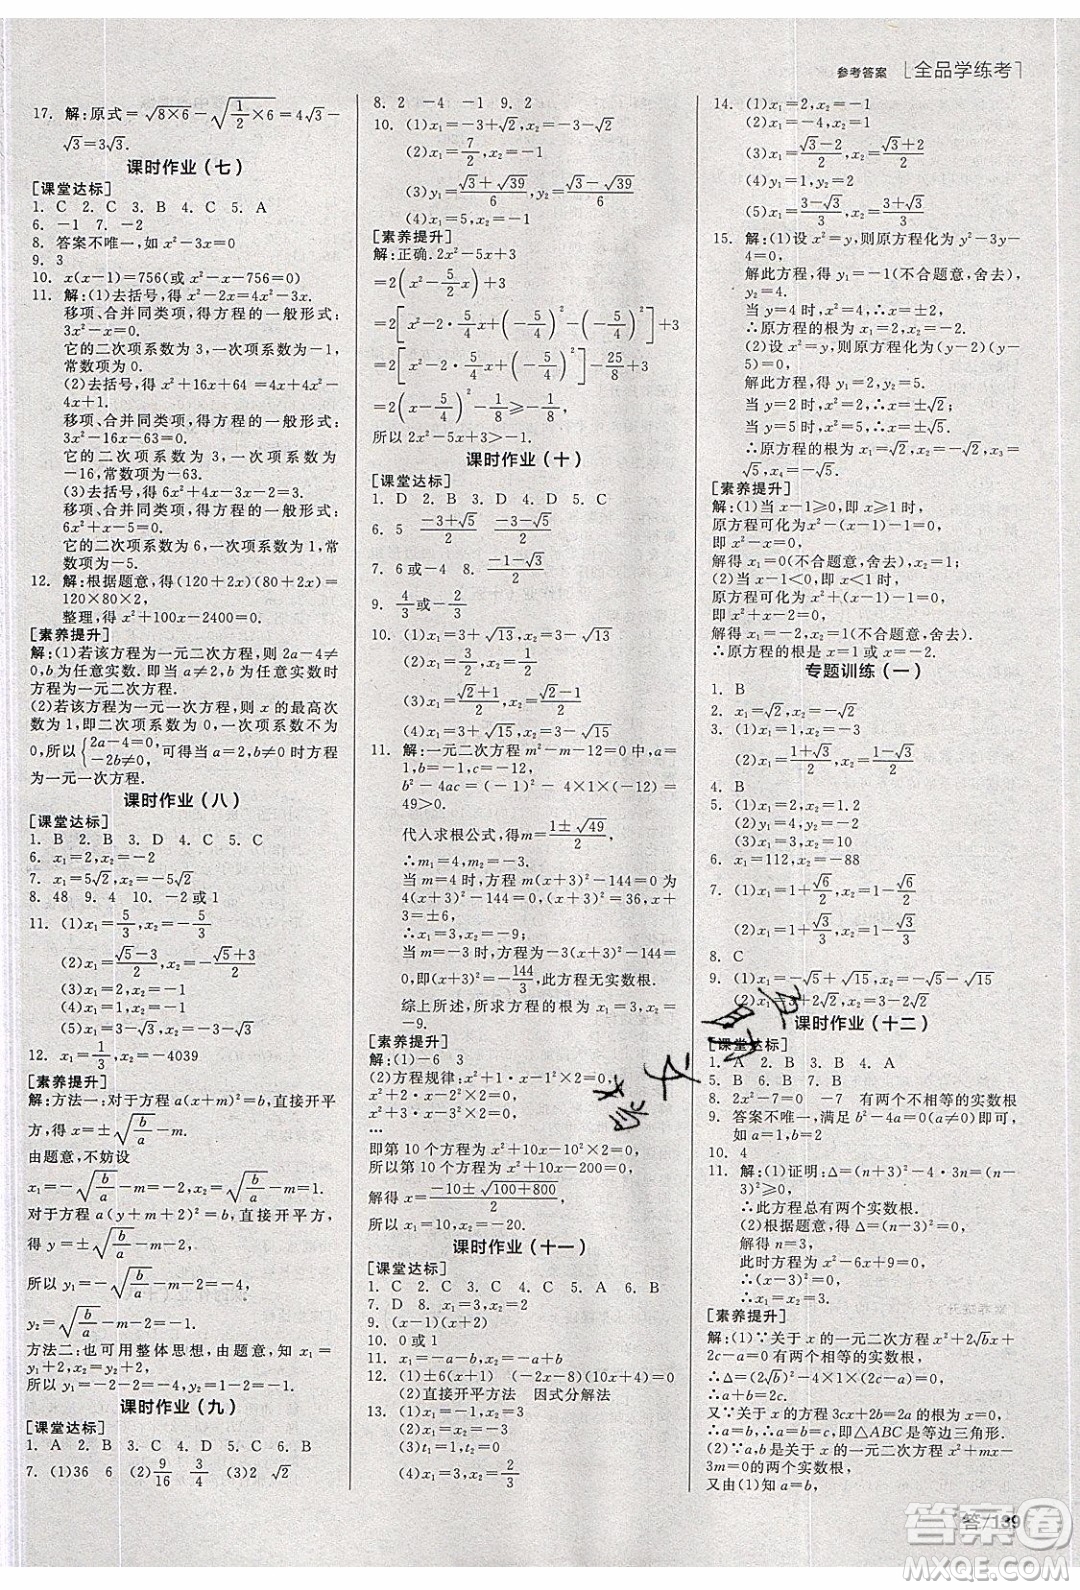 参考答案 [全品学练考]
17. 解:原式=√(8×6)-√(1/2×6)=4√3-
√3=3√3.
课时作业(七)
[课堂达标]
1. C 2. C 3. C 4. C 5. A
6. -1 7. -2
8. 答案不唯一,如 x²-3x=0
9. 3
10. x(x-1)=756(或 x²-x-756=0)
11. 解:(1)去括号,得 x²-2x=4x²-3x.
移项、合并同类项,得方程的一般形式:
3x²-x=0.
它的二次项系数为 3,一次项系数为-1,
常数项为 0.
(2)去括号,得 x²+16x+64 =4x²+
4x+1.
移项、合并同类项,得方程的一般形式:
3x²-12x-63=0.
(3)去括号,得 6x²+4x=4x+5.
移项、合并同类项,得方程的一般形式:
6x²-5=0.
它的二次项系数为 6,一次项系数为 0,常
数项为-5.
12. 解:根据题意,得(120+2x)(80+2x)=
120×80×2,
整理,得 x²+100x-2400=0.
[素养提升]
解:(1)若该方程为一元二次方程,则 2a-4≠0,
b 为任意实数.即当 a≠2,b 为任意实数时
方程为一元二次方程.
(2)若该方程为一元一次方程,则 x 的最高次
数为 1,即二次项系数为 0,一次项系数不为
0,所以{2a-4=0, -2b≠0,可得当 a=2,b≠0 时方程
为一元一次方程.
课时作业(八)
[课堂达标]
1. B 2. B 3. D 4. C 5. C
6. x₁=2,x₂=-2
7. x₁=5√2,x₂=-5√2
8. 48 9. 4 10. -2 或 1
11. (1)x₁=5/3,x₂=-5/3
(2)x₁=(√5-3)/2,x₂=-(√5+3)/2
(4)x₁=0,x₂=-1
(5)x₁=3-√3,x₂=-3-√3
12. x₁=1/3,x₂=-4039
[素养提升]
解:方法一:对于方程 a(x+m)²=b,直接开平
方,得 x=±√(b/a)-m.
由题意,不妨设
x₁=-√(b/a)-m=-2,x₂=√(b/a)-m=1.
对于方程 a(y+m+2)²=b,直接开平方,
得 y=±√(b/a)-m-2,
所以 y₁=-√(b/a)-m-2=-2-2=-4,
y₂=√(b/a)-m-2=1-2=-1.
方法二:也可用整体思想,由题意,知 x₁=
y₁+2,x₂=y₂+2,
所以 y₁=-2-2=-4,y₂=1-2=-1.
课时作业(九)
[课堂达标]
1. A 2. B 3. D 4. C 5. C 6. B
7. (1)36 6 (2)9/16 3/4 (3)2 √2
8. 2 -4 -1 9. 2
10. (1)x₁=-3+√2,x₂=-3-√2
(2)x₁=7/2,x₂=-1
(3)y₁=(√3+√39)/6,y₂=(√3-√39)/6
(4)x₁=5,x₂=1
[素养提升]
解:正确.2x²-5x+3
=2(x²-5/2x)+3
=2[x²-2·5/4x+(-5/4)²-(-5/4)²]+3
=2[x²-2·5/4x+(-5/4)²]-25/8+3
=2(x-5/4)²-1/8≥-1/8,
所以 2x²-5x+3>-1.
课时作业(十)
[课堂达标]
1. D 2. B 3. D 4. D 5. C
6. 5 (-3+√5)/2 (-3-√5)/2
7. 6 或-4 8. (-1-√3)/2
9. 4/3或-2/3
10. (1)x₁=3+√13,x₂=3-√13
(4)x₁=3+√15,x₂=3-√15
11. 解:一元二次方程 m²-m-12=0 中,a=1,
b=-1,c=-12,
b²-4ac=(-1)²-4×1×(-12)=
49>0.
代入求根公式,得m=(1±√49)/2,
∴m₁=4,m₂=-3.
当 m=4 时,方程 m(x+3)²-144=0 为
4(x+3)²-144=0,(x+3)²=36,x+
3=±6,
∴x₁=3,x₂=-9;
当 m=-3 时,方程为-3(x+3)²-144=
0,即(x+3)²=-144/3,此方程无实数根.
综上所述,所求方程的根为 x₁=3,x₂=
-9.
[素养提升]
(2)方程规律:x²+x-1²×2=0,
x²+2x-2²×2=0,
x²+3x-3²×2=0,
…
即第 10 个方程为 x²+10x-10²×2=0,
所以第 10 个方程为 x²+10x-200=0,
解得 x=(-10±√(100+800))/2,
所以 x₁=10,x₂=-20.
课时作业(十一)
[课堂达标]
1. C 2. C 3. C 4. C 5. A 6. B
7. D 8. x₁=2,x₂=0
9. (x-1)(x+2)
10. 0 或 1
11. x₁=-a-b,x₂=-a+b
12. (1)±√6 -2 (2x-8)(-2x-2)
(2)直接开平方法 因式分解法
13. (1)x₁=0,x₂=7
(3)t₁=t₂=1
(4)x₁=3,x₂=1
14. (1)x₁=2,x₂=1
(2)x₁=-4,x₂=1
(3)x₁=(√3-2)/2,x₂=(√3+2)/2
(4)x₁=1,x₂=3
(5)x₁=(3-√3)/2,x₂=(3+√3)/2
15. 解:(1)设 x²=y,则原方程化为 y²-3y-
4=0,
解此方程,得 y₁=-1(不合题意,舍去),
y₂=4.
当 y=4 时,x²=4,∴x=±2,
∴原方程的根为 x₁=2,x₂=-2.
(2)设 x²=y,则原方程化为(y-2)(y-
5)=0,
解此方程,得 y₁=2,y₂=5.
当 y=2 时,x²=2,x=±√2,
当 y=5 时,x²=5,x=±√5.
∴原方程的根为 x₁=√2,x₂=-√2,x₃=
√5,x₄=-√5.
[素养提升]
解:(1)当 x-1≥0,即 x≥1 时,
原方程可化为 x²-(x-1)-1=0,
即 x²-x=0,
解得 x₁=0(不合题意,舍去),x₂=1.
(2)当 x-1<0,即 x<1 时,
原方程可化为 x²+(x-1)-1=0,
即 x²+x-2=0,
解得 x₁=1(不合题意,舍去),x₂=-2.
∴原方程的根是 x=1 或 x=-2.
专题训练(一)
1. B
2. x₁=√2,x₂=-√2
3. (1)x₁=3,x₂=-1
(2)x₁=(1+√3)/2,x₂=(1-√3)/2
4. B
5. (1)x₁=2,x₂=1.2
(2)x₁=4,x₂=2
6. x₁=112,x₂=-88
7. (1)x₁=1+√6/2,x₂=1-√6/2
8. C
9. (1)x₁=-√5+√15,x₂=-√5-√15
(2)x₁=3+2√2,x₂=3-2√2
课时作业(十二)
[课堂达标]
1. A 2. B 3. B 4. A
5. B 6. B 7. D
8. 2x²-7=0 -7 有两个不相等的实数根
9. 答案不唯一,满足 b²=4a(a≠0)即可,
如 a=1,b=2
10. 4
∴此方程总有两个实数根.
(2)根据题意,得(n-3)²=0,
解得 n=3,
此时方程为 x²-6x+9=0,
∴x₁=x₂=3.
[素养提升]
解:(1)∵关于 x 的一元二次方程 x²+2√bx+
2c-a=0 有两个相等的实数根,
又∵关于 x 的方程 3cx+2b=2a 的根为
x=0,∴a=b,
∴a=b=c,即△ABC 是等边三角形.
(2)∵a,b 是关于 x 的一元二次方程 x²+mx-
3m=0 的两个实数根,
又由(1)知 a=b,
答/139
答案圈
MXQE.COM